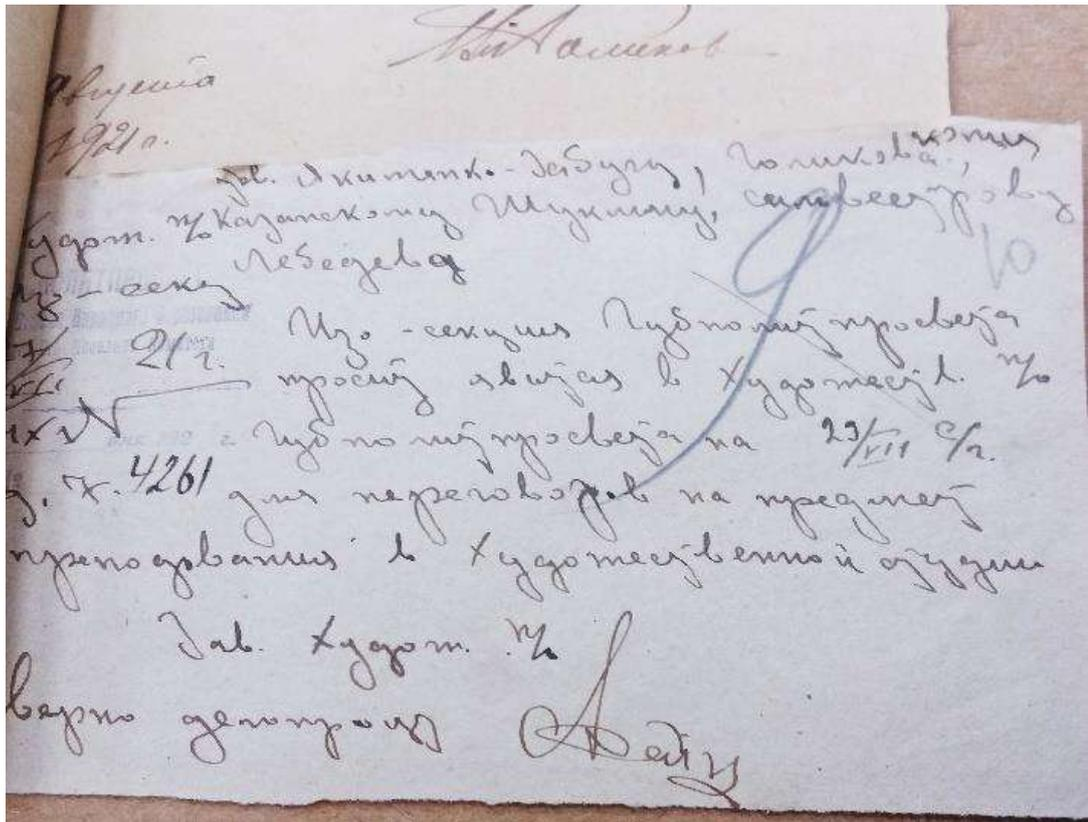 августа
1921 г.
копия
тов. Якименко-Забугу, Голикова,
Худож. п/о Казанскому Шукмину, Сильвестрову
Лебедева
Изо-секц
21 г.
Изо-секция Губполитпросвета
просит явится в Художест. п/о
Губполитпросвета на 23/VII с/г.
4261 для переговоров на предмет
преподования в Художественной студии
Зав. Худож. п/о
верно делопроиз